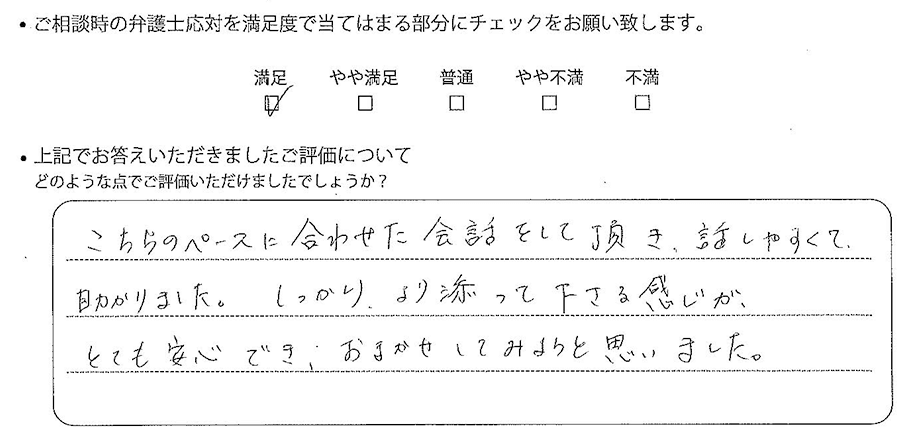 ・ご相談時の弁護士応対を満足度で当てはまる部分にチェックをお願い致します。
満足 やや満足 普通 やや不満 不満
・上記でお答えいただきましたご評価について
どのような点でご評価いただけましたでしょうか？
こちらのペースに合わせた会話をして頂き、話しやすくて、
助かりました。しっかり、より添って下さる感じが、
とても安心でき、おまかせしてみようと思いました。